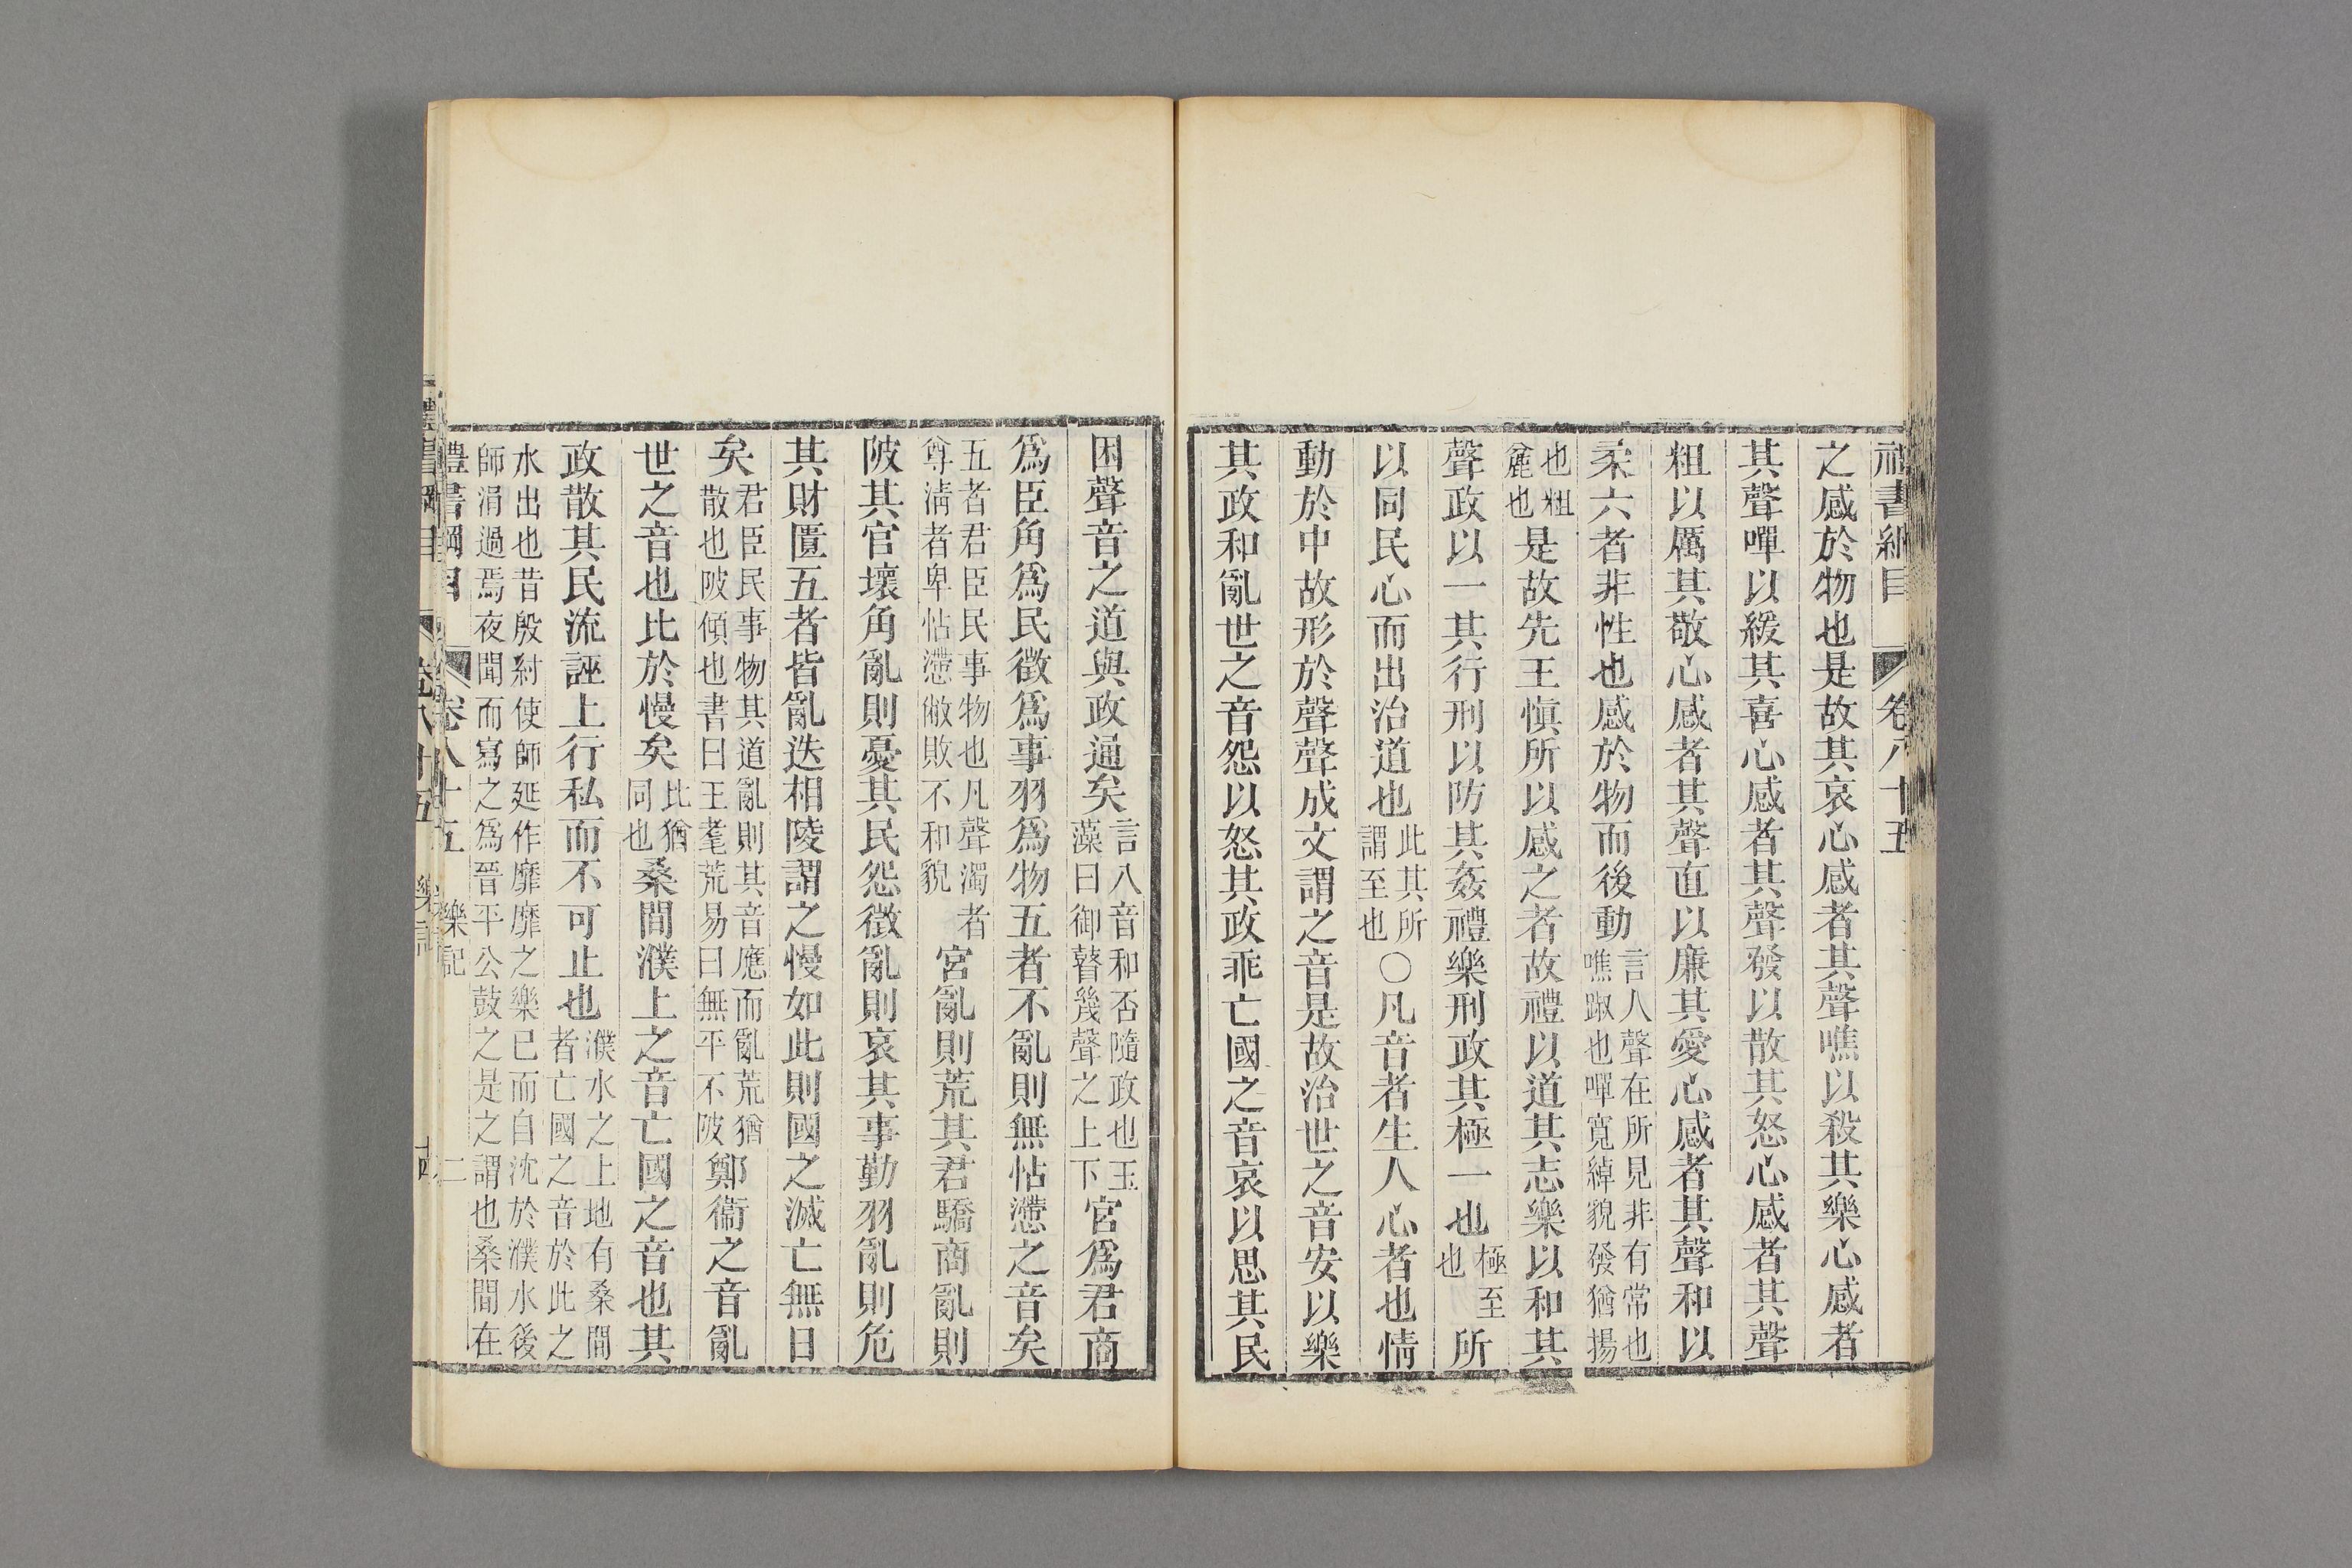 禮書綱目 卷八十五
之感於物也是故其哀心感者其聲噍以殺其樂心感者
其聲嘽以緩其喜心感者其聲發以散其怒心感者其聲
粗以厲其敬心感者其聲直以廉其愛心感者其聲和以
柔六者非性也感於物而後動言人聲在所見非有常也噍踧也嘽寬綽貌發猶揚
也粗麄也是故先王慎所以感之者故禮以道其志樂以和其
聲政以一其行刑以防其姦禮樂刑政其極一也極至也所
以同民心而出治道也此其所謂至也〇凡音者生人心者也情
動於中故形於聲聲成文謂之音是故治世之音安以樂
其政和亂世之音怨以怒其政乖亡國之音哀以思其民
困聲音之道與政通矣言八音和否隨政也玉藻曰御瞽幾聲之上下宮爲君商
爲臣角爲民徵爲事羽爲物五者不亂則無怗懘之音矣
五者君臣民事物也凡聲濁者尊淸者卑怗懘敝敗不和貌宮亂則荒其君驕商亂則
陂其官壞角亂則憂其民怨徵亂則哀其事勤羽亂則危
其財匱五者皆亂迭相陵謂之慢如此則國之滅亡無日
矣君臣民事物其道亂則其音應而亂荒猶散也陂傾也書曰王耄荒易曰無平不陂鄭衞之音亂
世之音也比於慢矣比猶同也桑間濮上之音亡國之音也其
政散其民流誣上行私而不可止也濮水之上地有桑間者亡國之音於此之
水出也昔殷紂使師延作靡靡之樂已而自沈於濮水後師涓過焉夜聞而寫之爲晉平公鼓之是之謂也桑間在
禮書綱目 卷八十五 樂記 二
禮書綱目 卷八十五 樂記